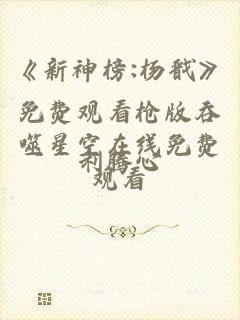 《新神榜:杨戬》
免费观看枪版吞
噬星空在线免费
观看
利腾心